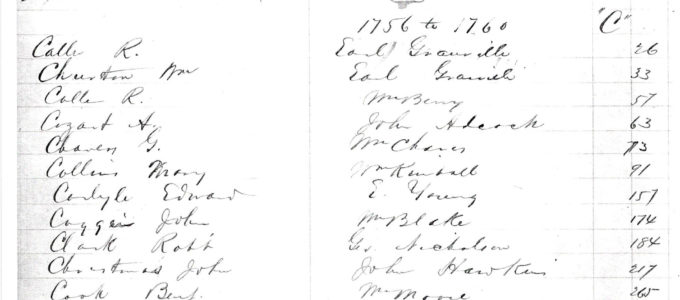 1756 to 1760 "C"
Calle R. Earl Granville 26
Churton Wm Earl Granvill 33
Calle R. Wm Berry 57
Cozart Ay John Adcock 63
Chavers G. Wm Chavis 73
Collins Mary Wm Kimball 91
Carlyle Edward E. Young 157
Coggin John Wm Blake 174
Clark Robt Go Nicholson 184
Christmas John John Hawkins 217
Cook Benj. Wm Moore 265